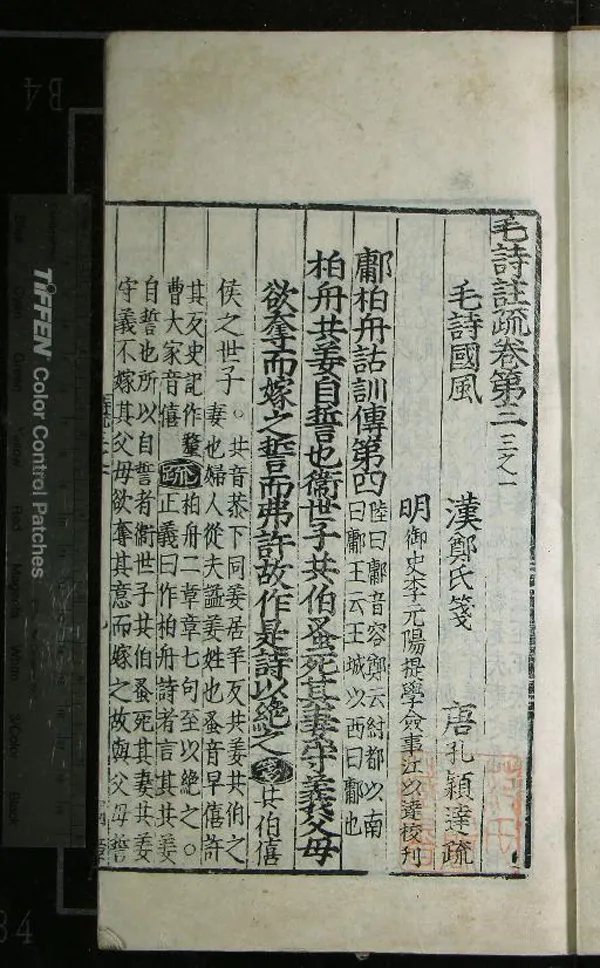 毛詩註疏卷第三 三之一
毛詩國風
漢鄭氏箋 唐孔穎達疏
明御史李元陽提學僉事江以達校刊
鄘柏舟詁訓傳第四 陸曰鄘音容鄭云紂都以南
曰鄘王云王城以西曰鄘也
柏舟共姜自誓也衞世子共伯蚤死其妻守義父母
欲奪而嫁之誓而弗許故作是詩以絶之 箋 共伯僖
侯之世子。共音恭下同姜居羊反共姜共伯之
妻也婦人從夫謚姜姓也蚤音早僖許
其反史記作釐
曹大家音僖 疏 柏舟二章章七句至以絶之。
正義曰作柏舟詩者言其共姜
自誓也所以自誓者衞世子共伯蚤死其妻共姜
守義不嫁其父母欲奪其意而嫁之故與父母誓
TIFFEN Color Control Patches
B4
B4